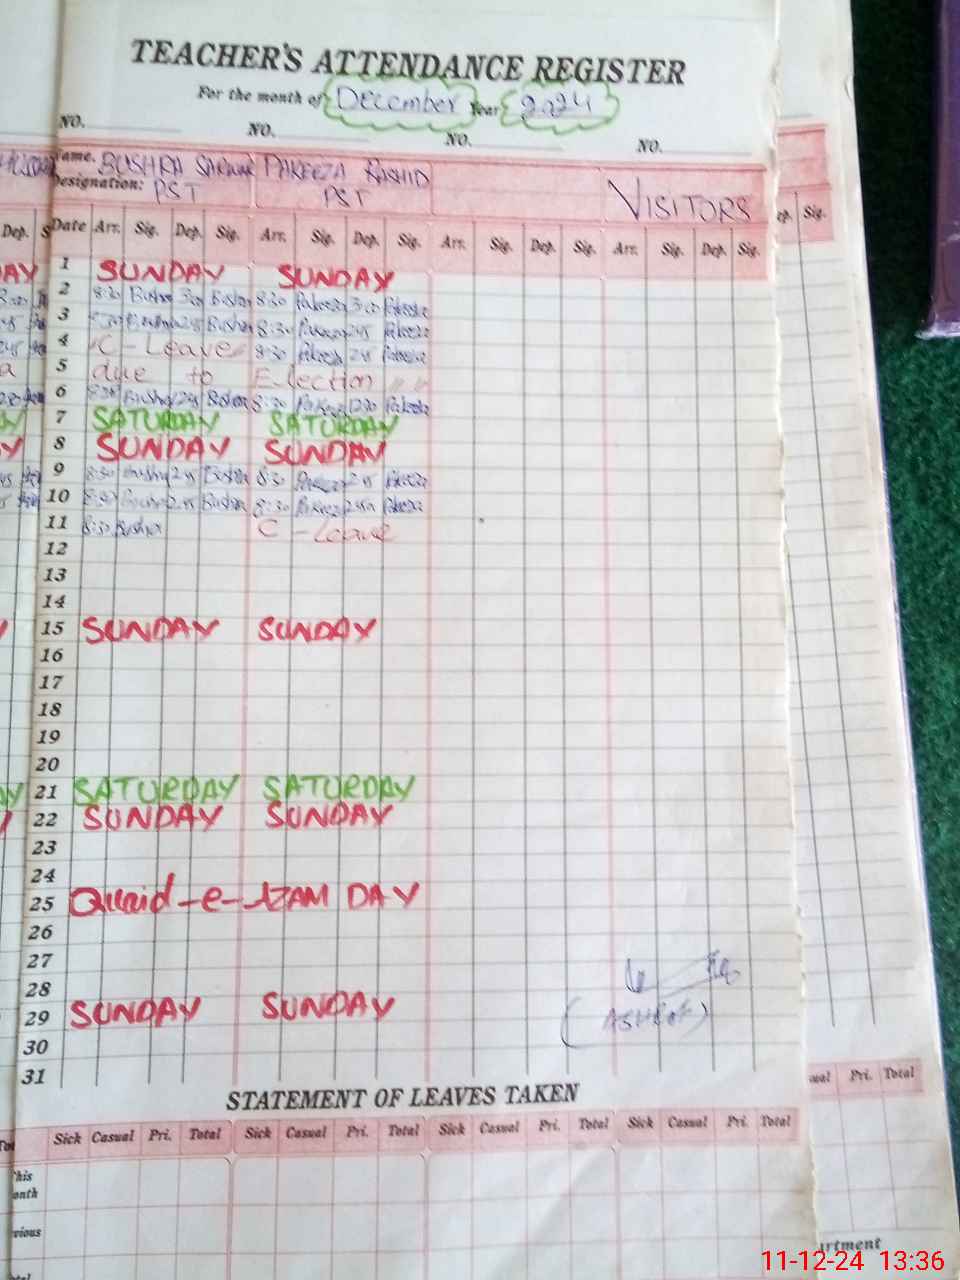 TEACHER'S ATTENDANCE REGISTER
For the month of December Year 2024
NO. NO. NO. NO.
Name. BUSHRA SARWAR PAKEEZA RASHID
Designation: PST PST VISITORS
Dep. Date Arr. Sig. Dep. Sig. Arr. Sig. Dep. Sig. Arr. Sig. Dep. Sig. Arr. Sig. Dep. Sig. ep. Sig.
1 SUNDAY SUNDAY
2 8:30 Bushra 3:00 Bushra 8:30 Pakeeza 3:00 Pakeeza
3 8:30 Bushra 2:45 Bushra 8:30 Pakeeza 2:45 Pakeeza
4 C-Leave 8:30 Pakeeza 2:45 Pakeeza
5 due to Election
6 8:30 Bushra 12:30 Bushra 8:30 Pakeeza 12:30 Pakeeza
7 SATURDAY SATURDAY
8 SUNDAY SUNDAY
9 8:30 Bushra 2:45 Bushra 8:30 Pakeeza 2:45 Pakeeza
10 8:30 Bushra 2:45 Bushra 8:30 Pakeeza 2:45 Pakeeza
11 8:30 Bushra C-Leave
12
13
14
15 SUNDAY SUNDAY
16
17
18
19
20
21 SATURDAY SATURDAY
22 SUNDAY SUNDAY
23
24
25 Quaid-e-AZAM DAY
26
27
28
29 SUNDAY SUNDAY
30
31
STATEMENT OF LEAVES TAKEN
Sick Casual Pri. Total Sick Casual Pri. Total Sick Casual Pri. Total Sick Casual Pri. Total Pri. Total
11-12-24 13:36